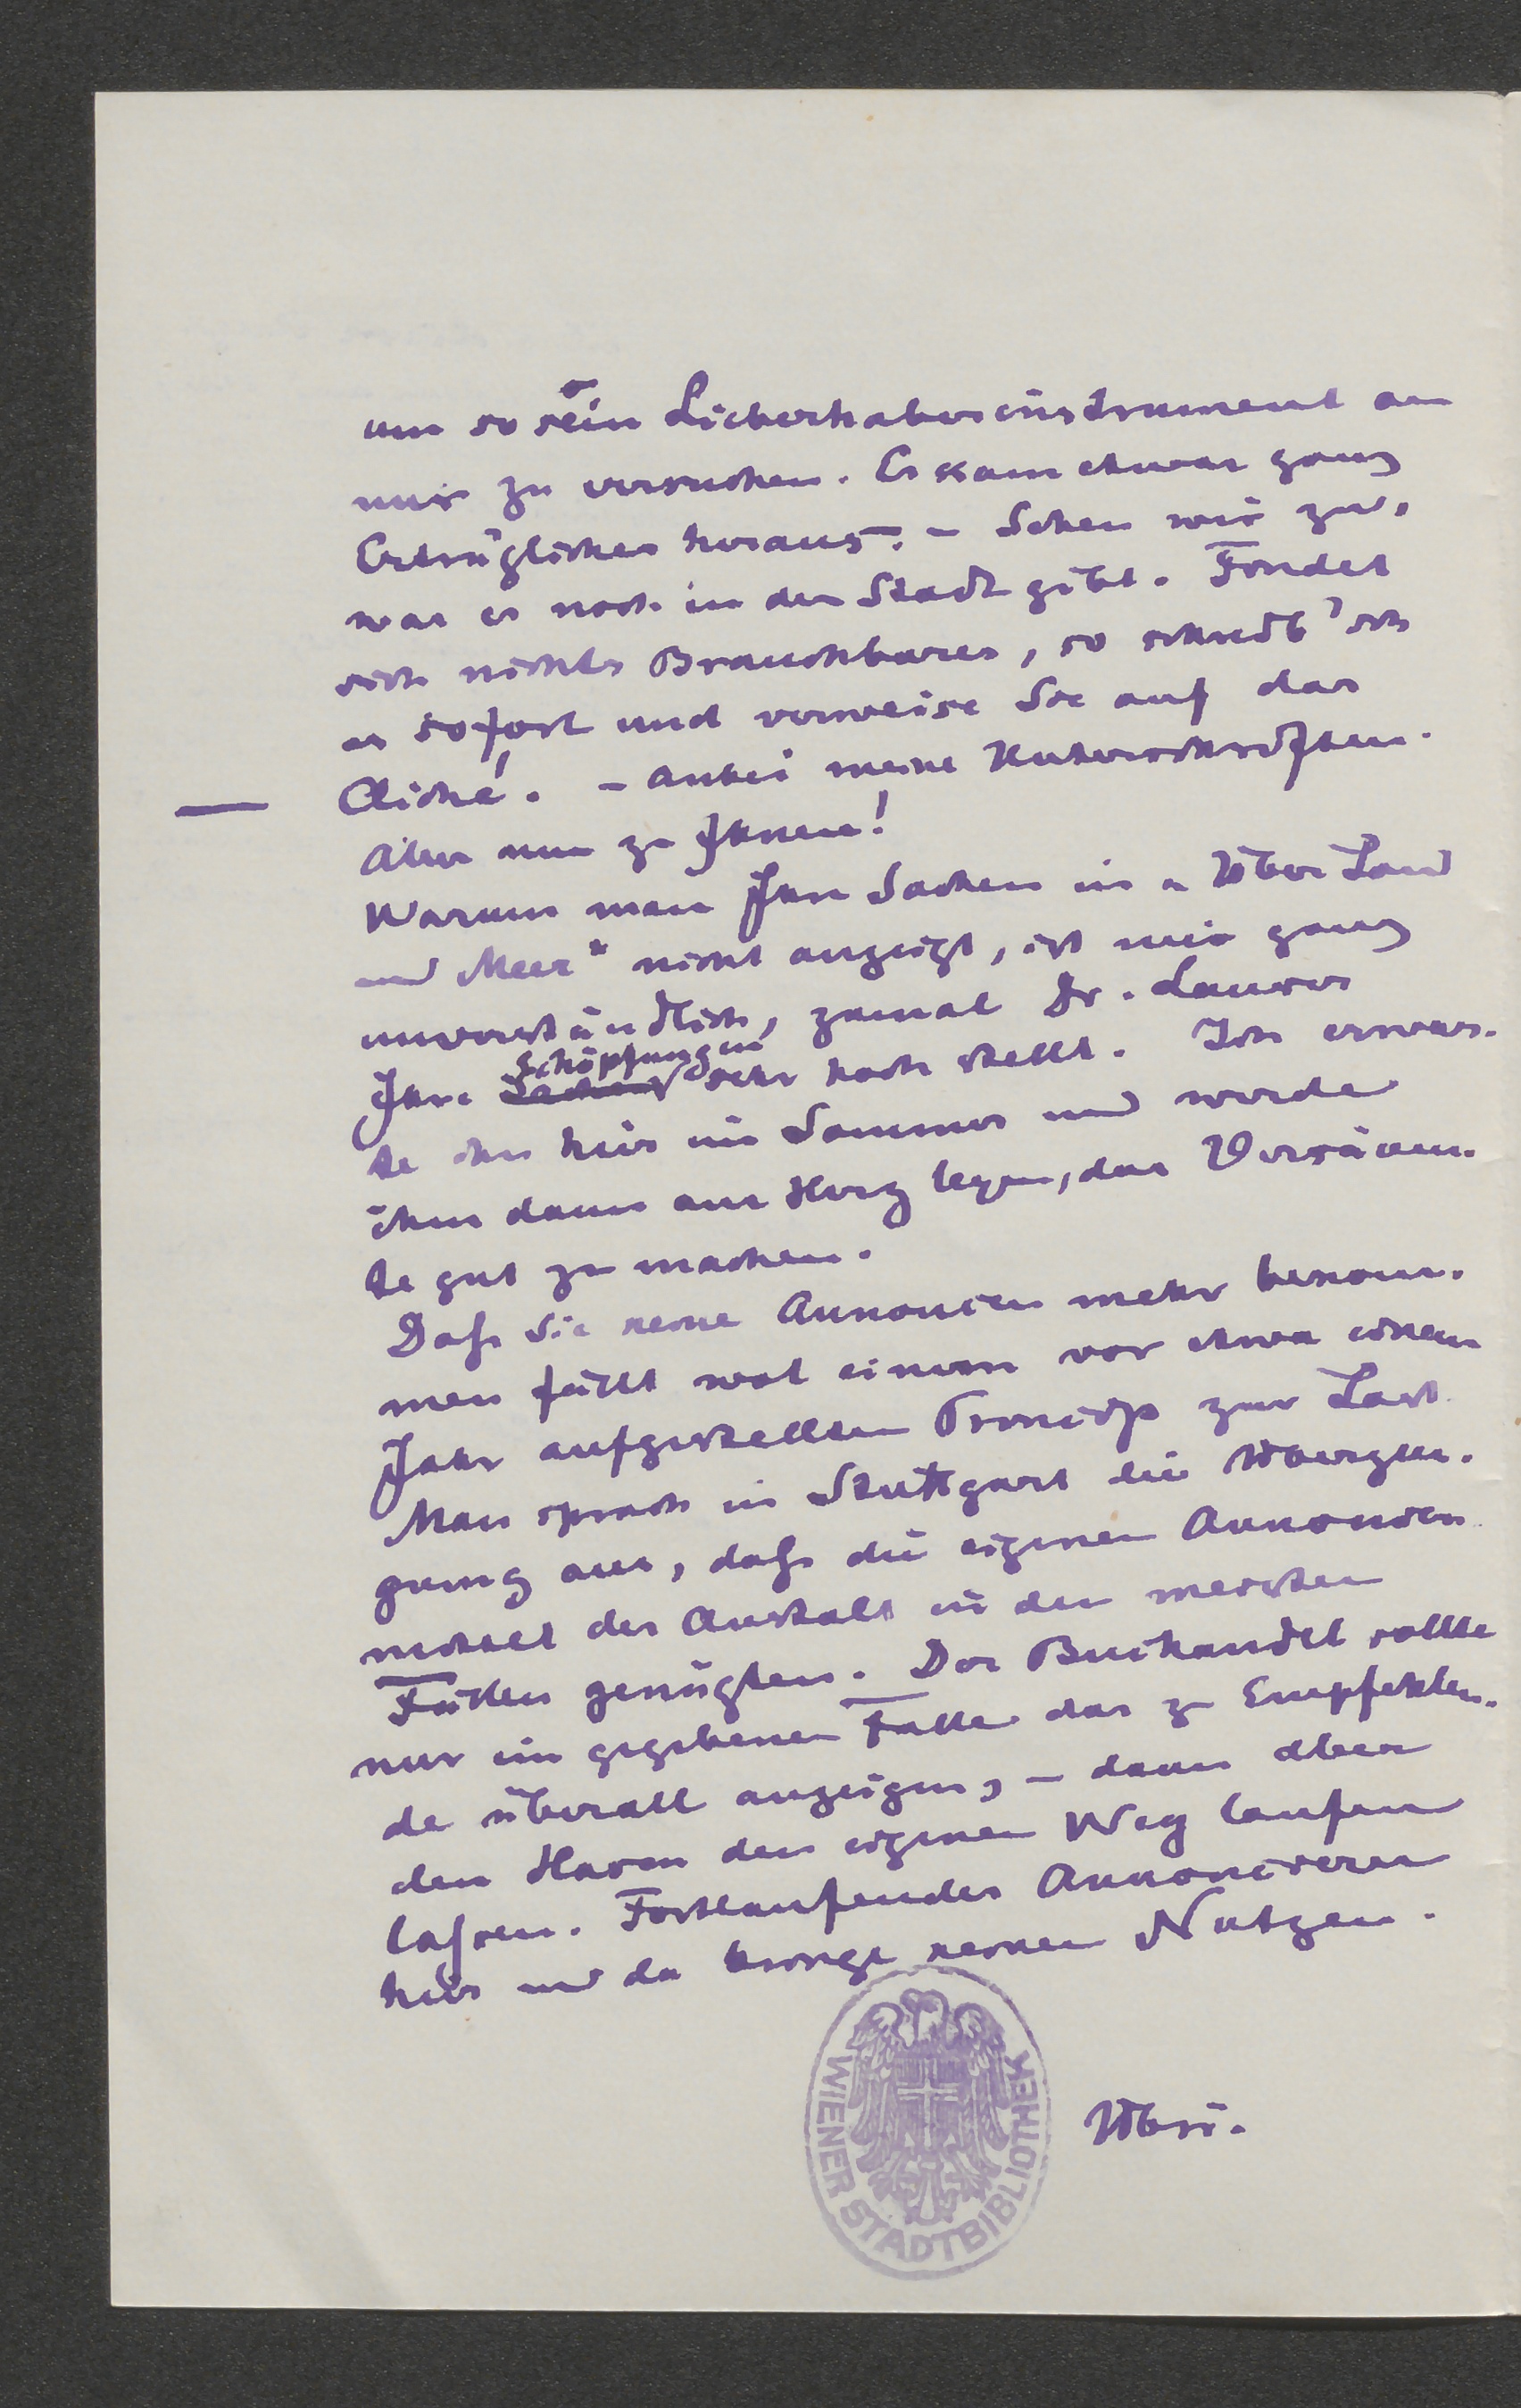 um so sein Liebhaberinstrument an
mir zu versuchen. Es kam etwas ganz
Erträgliches heraus. – Sehen wir zu,
was es noch in der Stadt gibt. Findet
sich nichts Brauchbares, so schreib' ich
es sofort und verweise Sie auf das
Cliché. – Anbei meine Unterschriften.
Aber nun zu Ihnen!
Warum man Ihre Sachen in „Über Land
und Meer“ nicht anzeigt, ist mir ganz
unverständlich, zumal Dr. Lauser
Schöpfungen
Ihre Sachen sehr hoch stellt. Ich erwar-
te ihn hier im Sommer und werde
ihm dann ans Herz legen, das Versäum-
te gut zu machen.
Daß Sie keine Annoncen mehr bekom-
men fällt wol einem vor etwa einem
Jahr aufgestellten Princip zur Last.
Man sprach in Stuttgart die Überzeu-
gung aus, daß die eigenen Annoncen
mittel der Anstalt in den meisten
Fällen genügten. Der Buchhandel sollte
nur im gegebenen Falle das zu Empfehlen-
de überall anzeigen, – dann aber
den Hasen den eigenen Weg laufen
laßen. Fortlaufendes Annonciren
hier und da bringe keinen Nutzen.
WIENER STADTBIBLIOTHEK